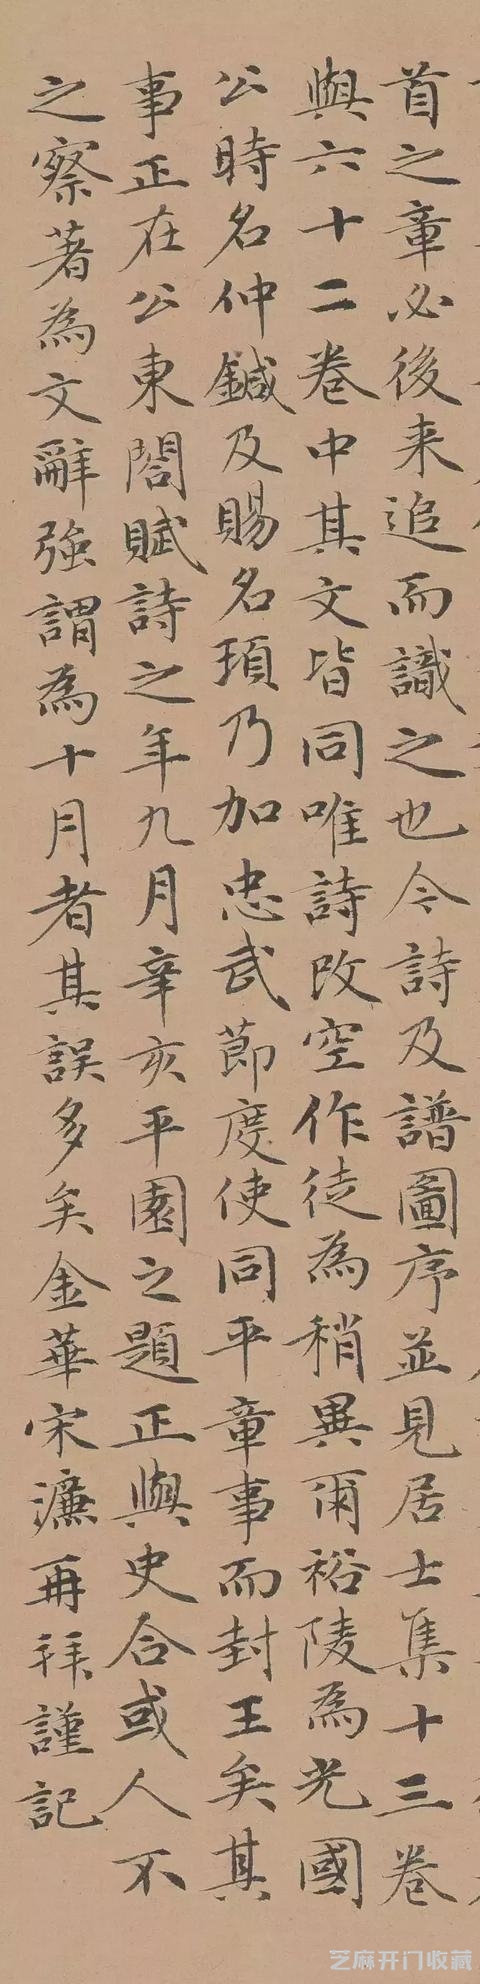 首之章必後来追而識之也今詩及譜圖序並見居士集十三卷
與六十二卷中其文皆同唯詩改空作徒為稍異爾裕陵為光國
公時名仲鍼及賜名頊乃加忠武節度使同平章事而封王矣其
事正在公東閤賦詩之年九月辛亥平園之題正與史合或人不
之察著為文辭強謂為十月者其誤多矣金華宋濂再拜謹記
芝麻开门收藏